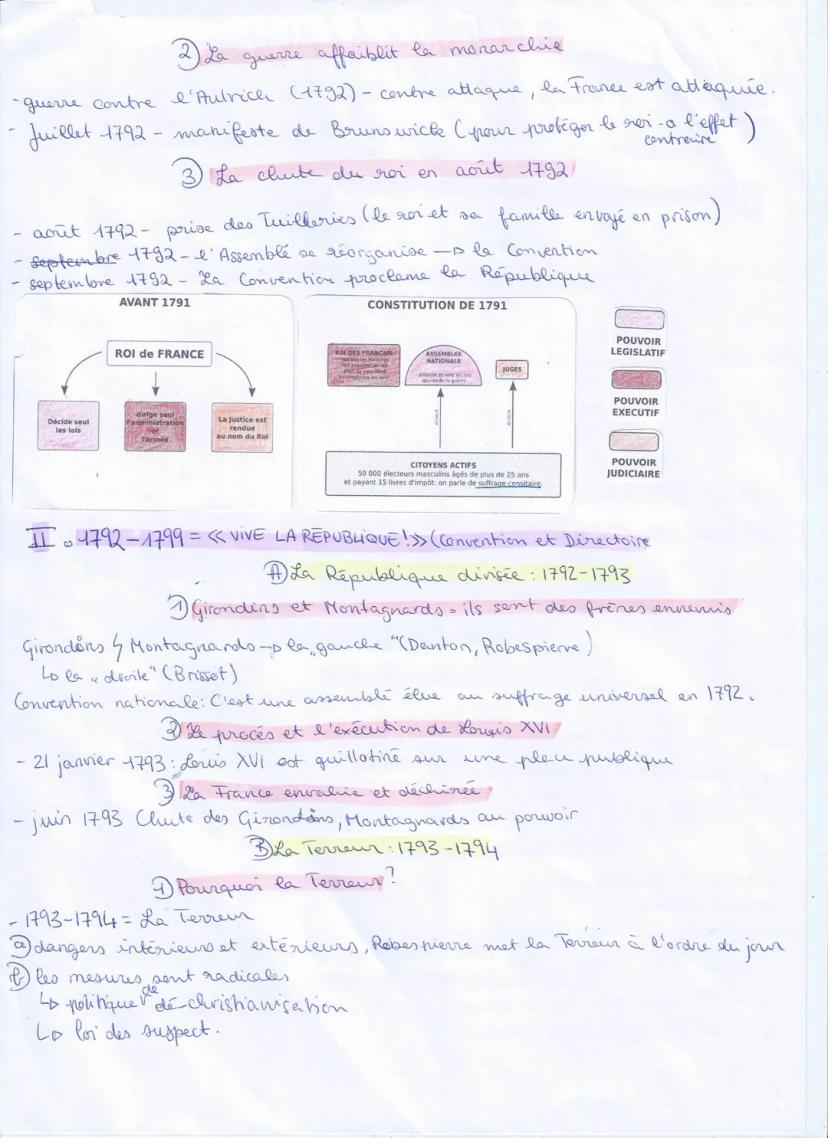 2) La guerre affaiblit la monarchie
- guerre contre l'Autrich (1792) - contre attaque, la France est attaquée.
- Juillet 1792 - manifeste de Brunswick (pour protéger le roi - a l'effet contraire)
3) La chute du roi en août 1792
- août 1792 - prise des Tuilleries (le roi et sa famille envoyé en prison)
- septembre 1792 - l'Assemblé se réorganise → la Convention
- septembre 1792 - La Convention proclame la République
AVANT 1791
ROI de FRANCE
Décide seul les lois
dirige seul l'administration et l'armée
La Justice est rendue au nom du Roi
CONSTITUTION DE 1791
ROI DES FRANÇAIS
ASSEMBLEE NATIONALE
JUGES
CITOYENS ACTIFS
50 000 électeurs masculins âgés de plus de 25 ans
et payant 15 livres d'impôt: on parle de suffrage censitaire.
POUVOIR LEGISLATIF
POUVOIR EXECUTIF
POUVOIR JUDICIAIRE
II. 1792-1799 = << VIVE LA RÉPUBLIQUE!>> (Convention et Directoire
A) La République divisée : 1792-1793
1) Girondins et Montagnards = ils sont des frères ennemis
Girondins ϟ Montagnards → la „gauche" (Danton, Robespierre)
↳ la „droite" (Brissot)
Convention nationale: C'est une assemblé élue au suffrage universel en 1792.
2) Le procés et l'exécution de Louis XVI
- 21 janvier 1793 : Louis XVI est guillotiné sur une place publique
3) La France envahie et déchirée
- juin 1793 Chute des Girondins, Montagnards au pouvoir
B) La Terreur : 1793-1794
1) Pourquoi la Terreur?
- 1793-1794 = La Terreur
a) dangers intérieurs et extérieurs, Robespierre met la Terreur à l'ordre du jour
b) les mesures sont radicales
↳ politique de dé-christianisation
↳ loi des suspect.